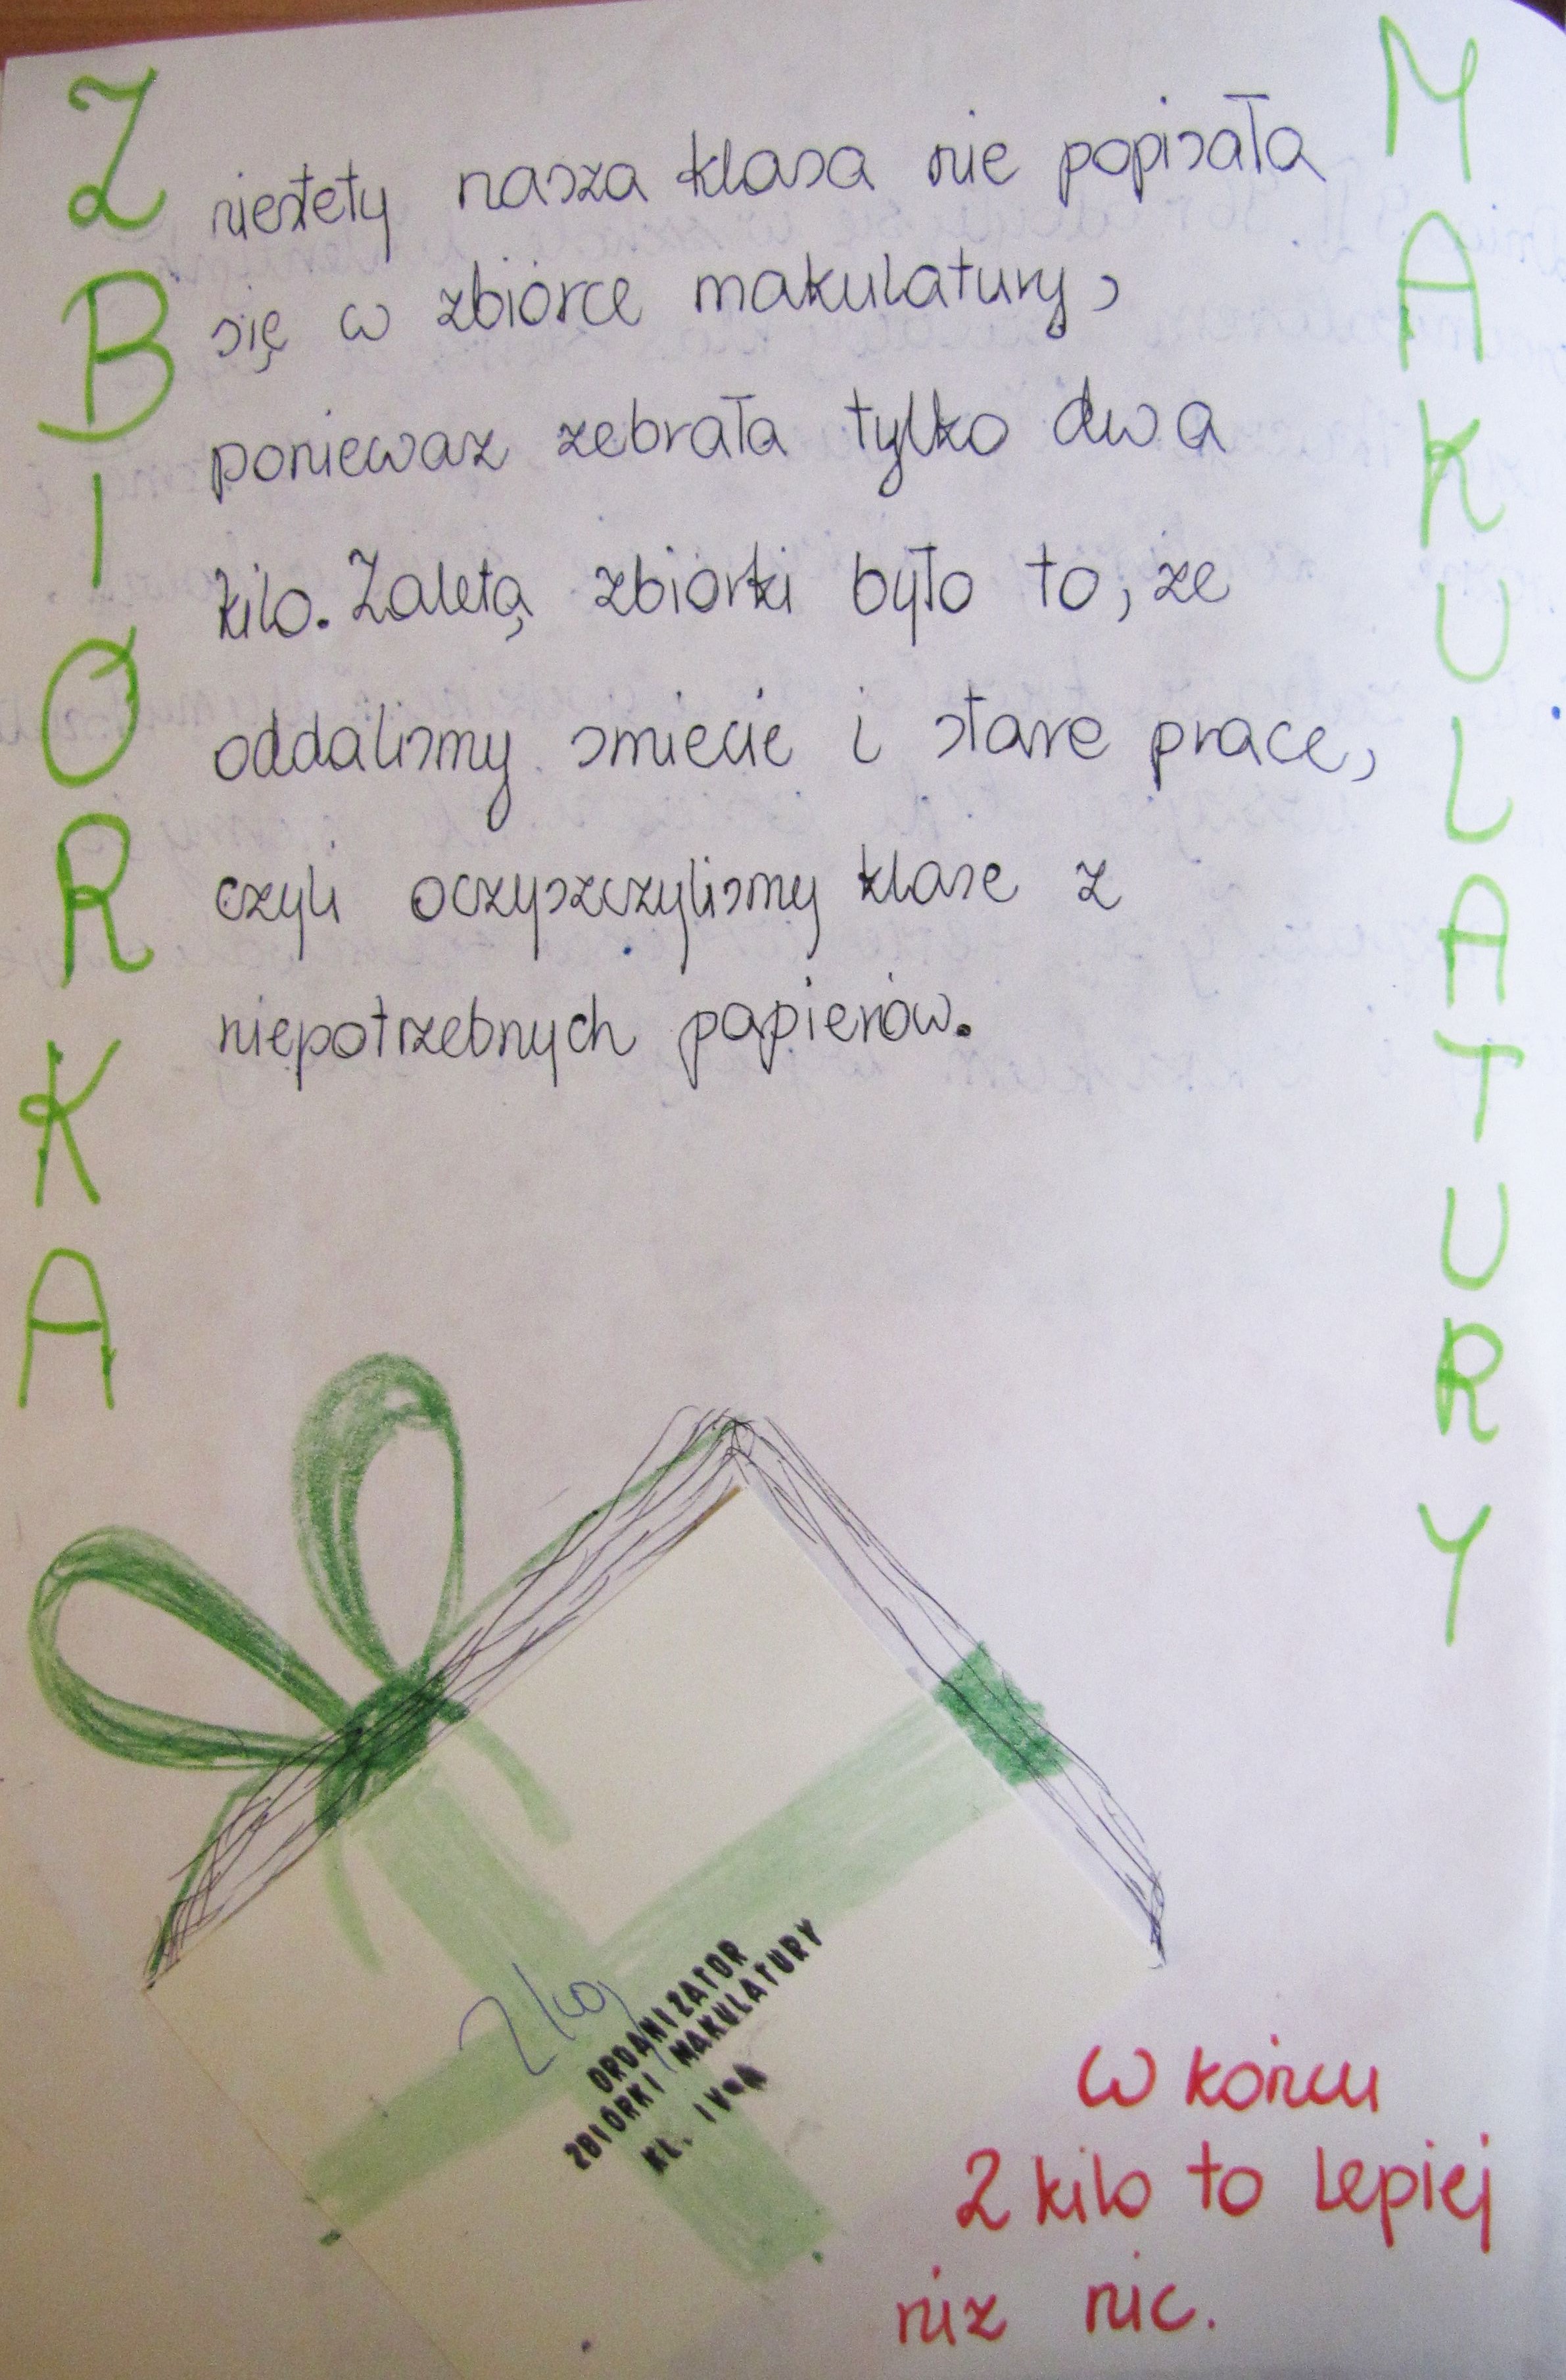 ZBIÓRKA
MAKULATURY
niestety nasza klasa nie popisała
się w zbiórce makulatury,
poniewaz zebrała tylko dwa
kilo. Zaletą zbiórki było to, ze
oddalismy smiecie i stare prace,
czyli oczyszczylismy klase z
niepotrzebnych papierów.
2kg
ORGANIZATOR
ZBIÓRKI MAKULATURY
KL. IV-A
W końcu
2 kilo to lepiej
niz nic.